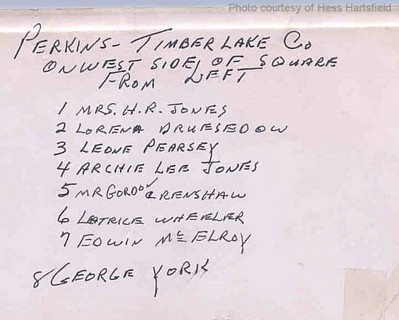 Photo courtesy of Hess Hartsfield
PERKINS-TIMBERLAKE CO
ON WEST SIDE, OF SQUARE
FROM LEFT
1 MRS. H.R. JONES
2 LORENA DRUESEDOW
3 LEONE PEARSEY
4 ARCHIE LEE JONES
5 MR GORDON CRENSHAW
6 LATRICE WHEELER
7 EDWIN McELROY
8 GEORGE YORK